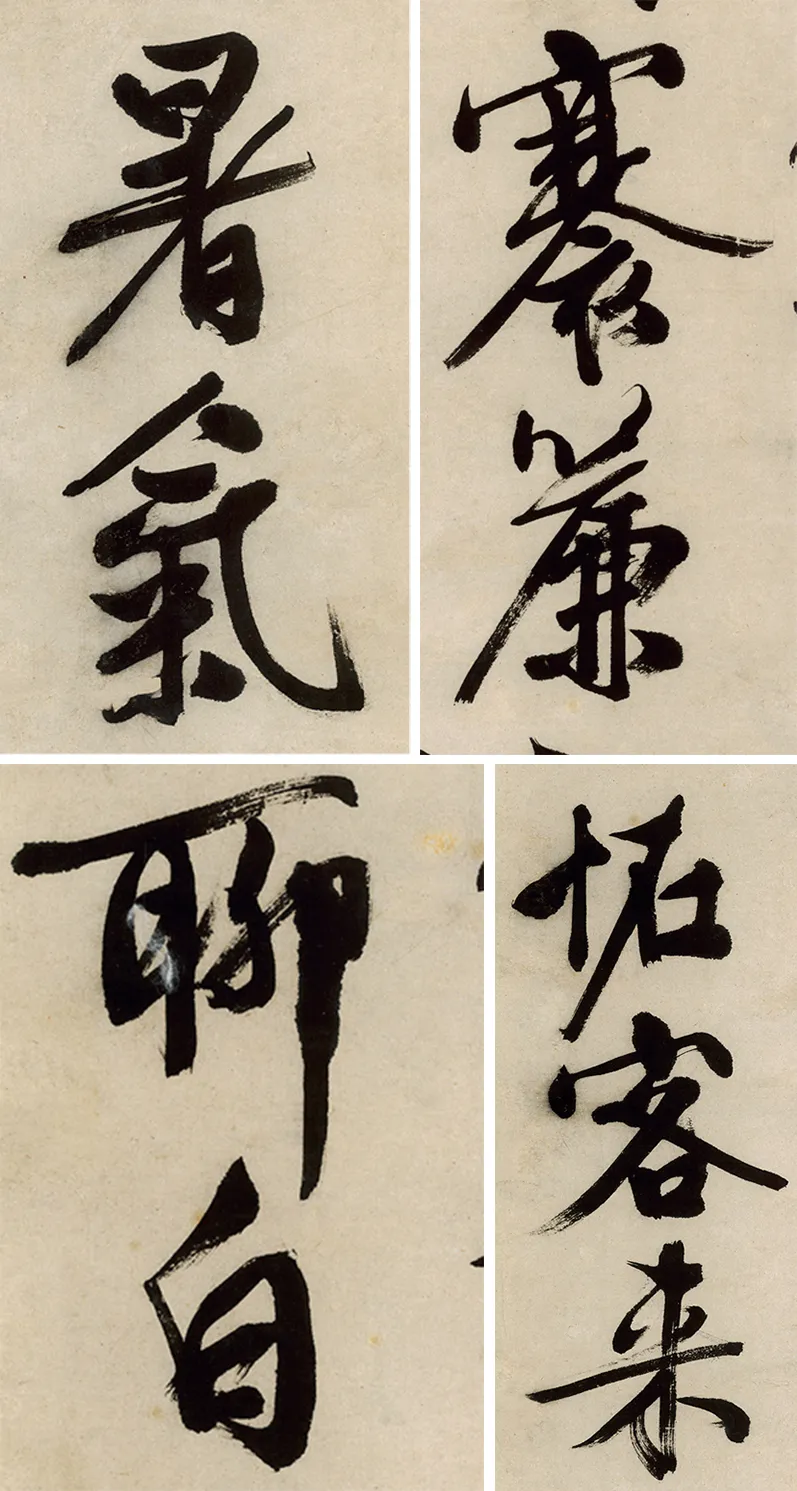 暑氣
褰簾
聊自
怕客来